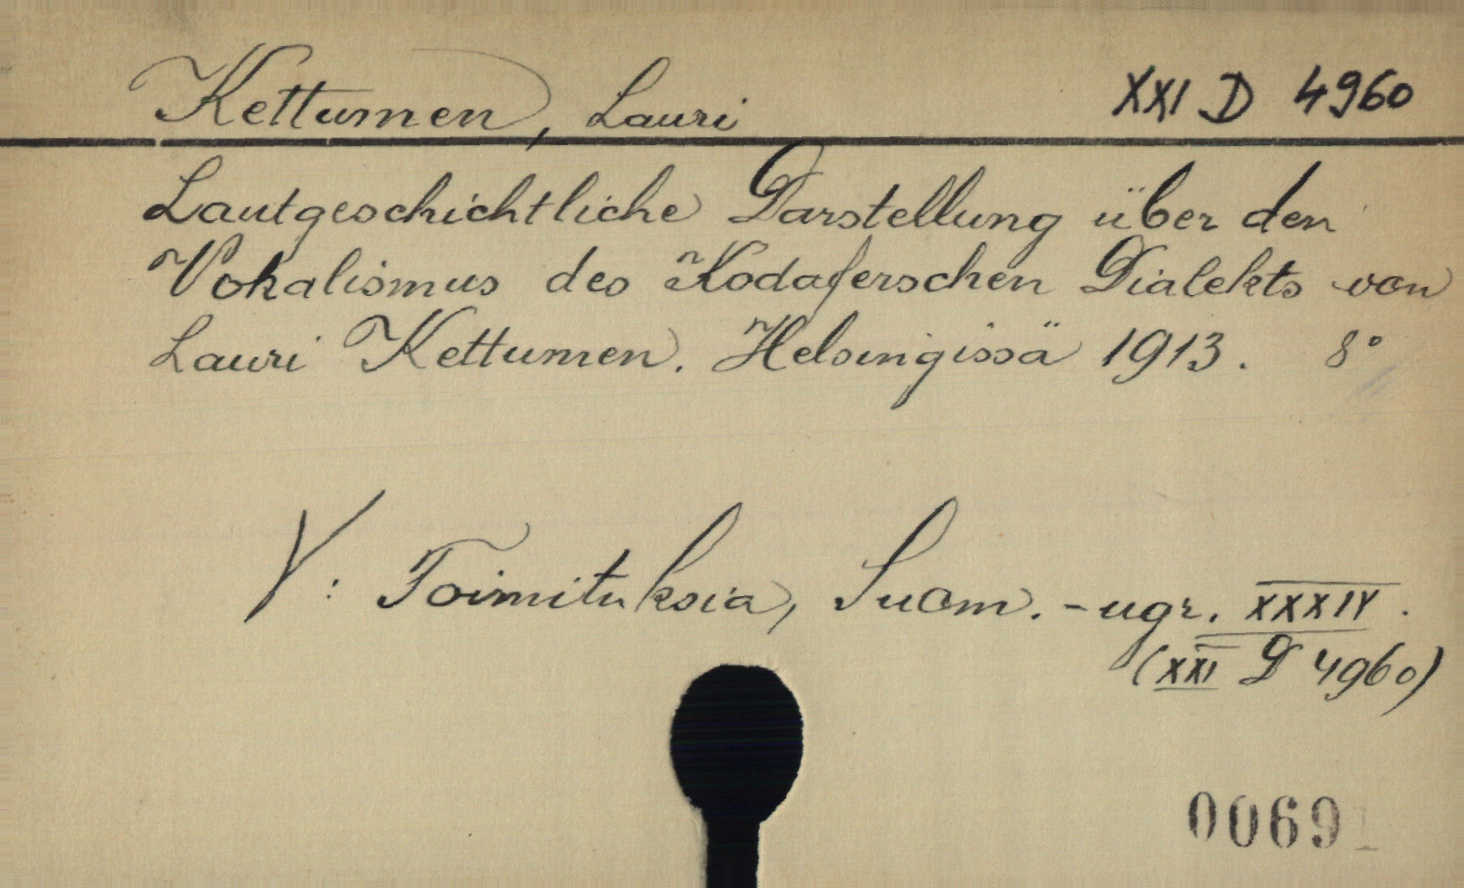 Kettunen, Lauri XXI D 4960
Lautgeschichtliche Darstellung über den
Vokalismus des Kodaferschen Dialekts von
Lauri Kettunen. Helsingissä 1913. 8°
V: Toimituksia, Suom.-ugr. XXXIV.
(XXI D 4960)
0069